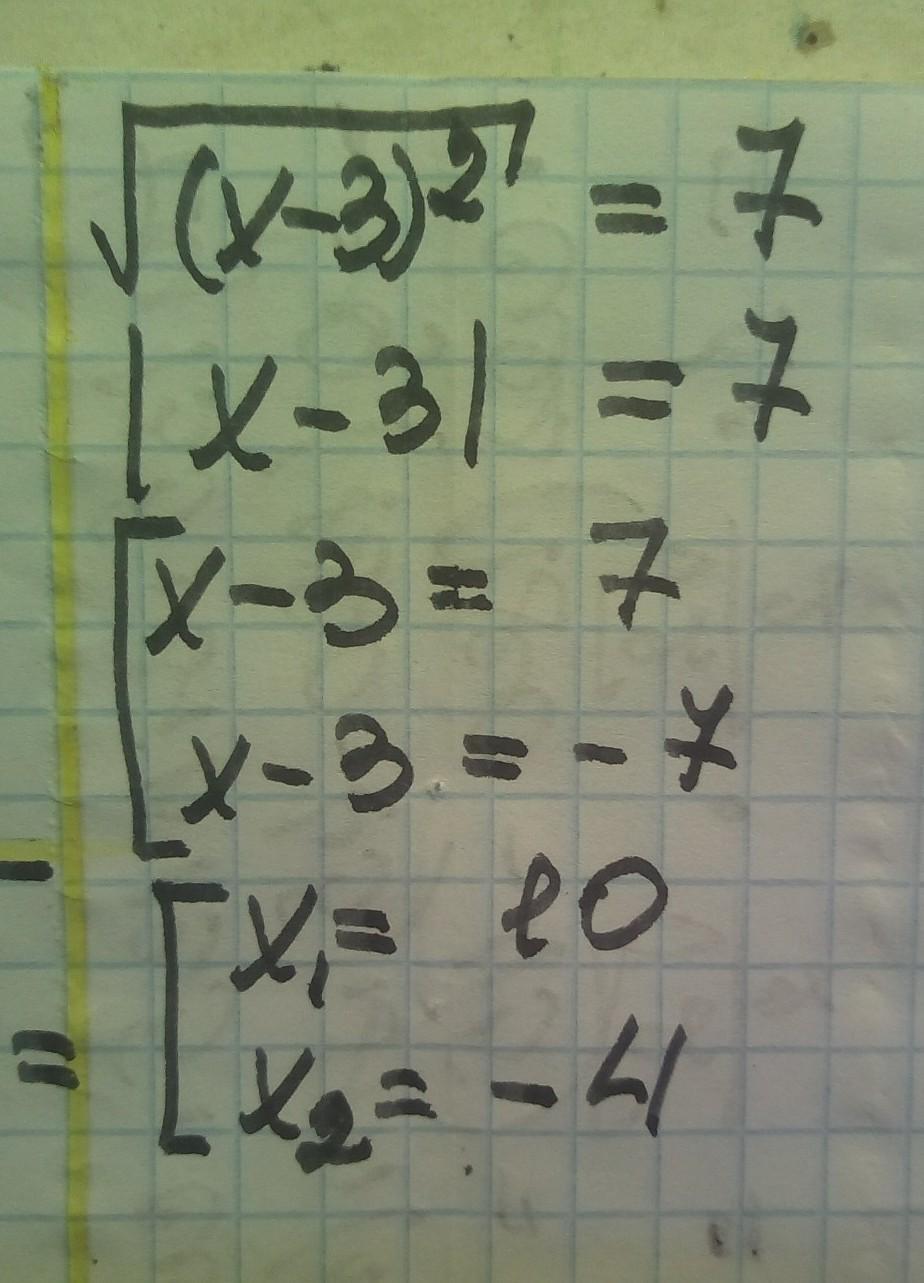 √(x-3)² = 7
|x-3| = 7
[x-3 = 7
x-3 = -7
[x₁ = 10
x₂ = -4